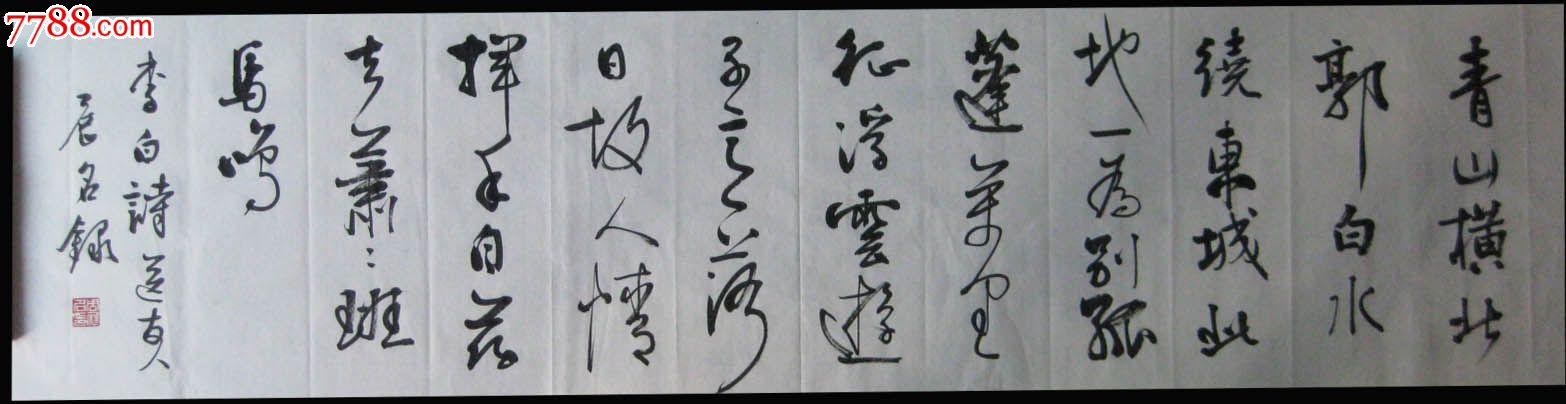 7788.com
青山橫北
郭白水
繞東城此
地一為別孤
蓬萬里
征浮雲遊
子意落
日故人情
揮手自茲
去蕭〻班
馬鳴
李白詩送友人
辰名錄